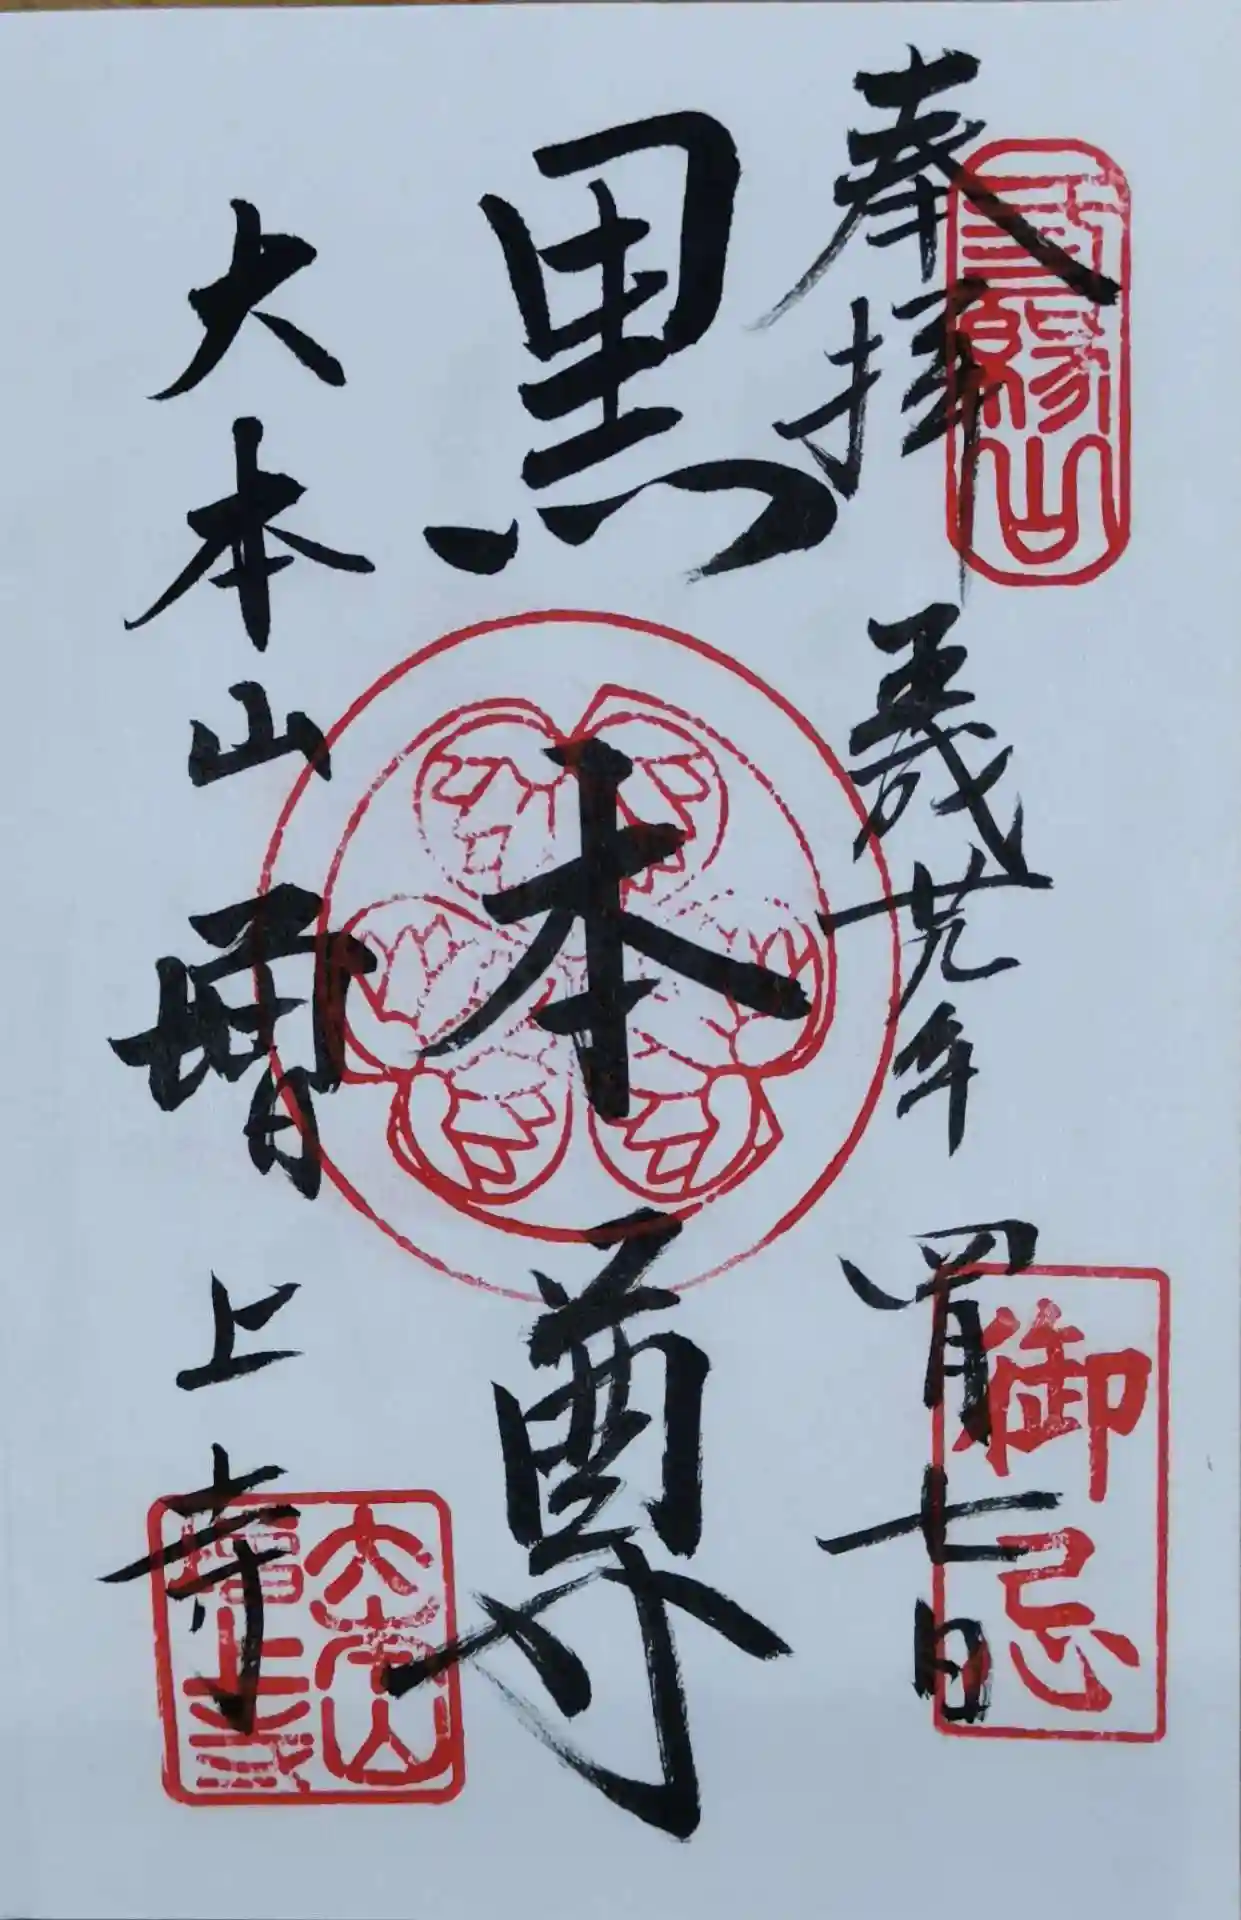 奉拝 平成廿九年 四月七日
三縁山
御忌
黒本尊
大本山増上寺
大本山増上寺